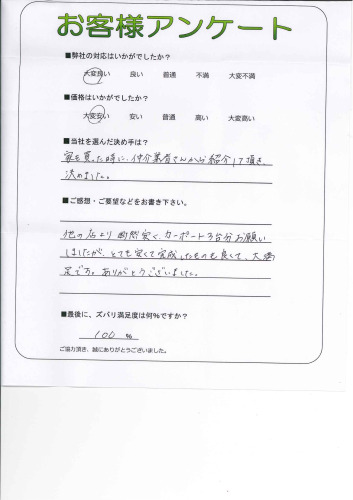 お客様アンケート
■弊社の対応はいかがでしたか？
大変良い 良い 普通 不満 大変不満
■価格はいかがでしたか？
大変安い 安い 普通 高い 大変高い
■当社を選んだ決め手は？
家を買った時に、仲介業者さんから紹介して頂き、
決めました。
■ご感想・ご要望などをお書き下さい。
他の店より断然安く、カーポート3台分お願い
しましたが、とても安くて完成したものも良くて、大満
足です。ありがとうございました。
■最後に、ズバリ満足度は何%ですか？
100 %
ご協力頂き、誠にありがとうございました。